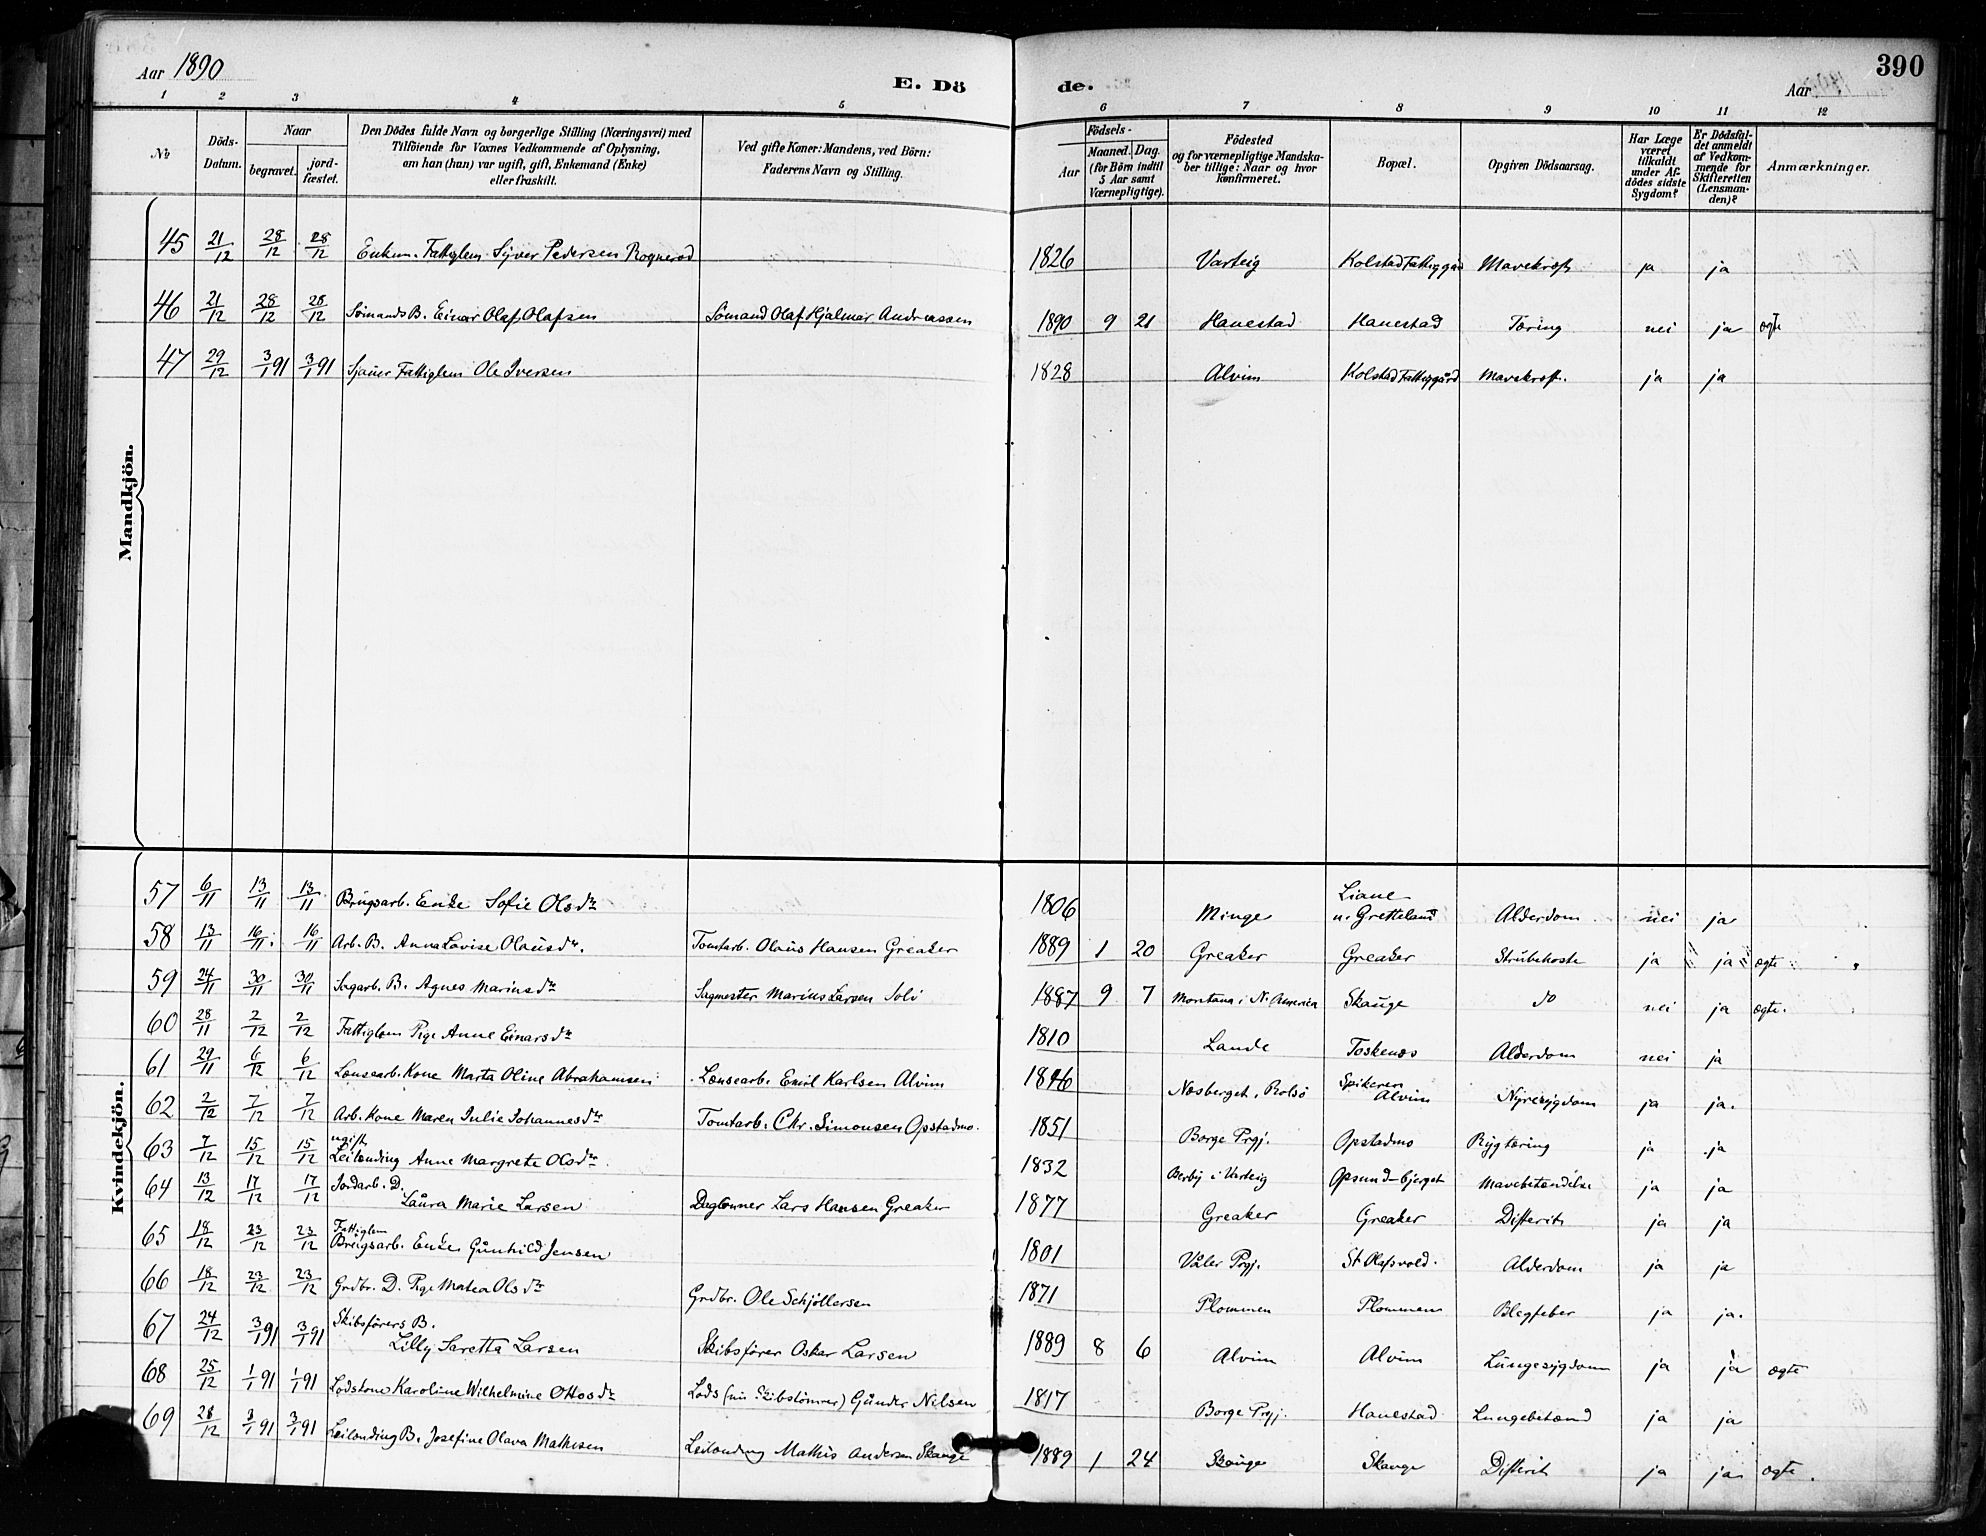 Aar 1890 E. Dö de. Aar 390
1 2 3 4 5 6 7 8 9 10 11 12
№ Döds-Datum. Naar begravet. jordfæstet. Den Dödes fulde Navn og borgerlige Stilling (Næringsvei) med Tilföiende for Voxnes Vedkommende af Oplysning, om han (hun) var ugift, gift, Enkemand (Enke) eller fraskilt. Ved gifte Koner: Mandens, ved Börn: Faderens Navn og Stilling. Födsels- Aar Maaned. Dag. (for Börn indtil 5 Aar samt Værnepligtige). Födested og for værnepligtige Mandskaber tillige: Naar og hvor konfirmeret. Bopæl. Opgiven Dödsaarsag. Har Læge været tilkaldt under Afdödes sidste Sygdom? Er Dödsfaldet anmeldt af Vedkommende for Skifteretten (Lensmanden)? Anmærkninger.
Mandkjön.
45 21/12 28/12 28/12 Enkem. Fattiglem Syver Pedersen Rognerød 1826 Varteig Kolstad Fattiggård Mavekræft ja ja
46 21/12 28/12 28/12 Sömands B. Einar Olaf Olafsen Sömand Olaf Hjalmar Andreassen 1890 9 21 Hanestad Hanestad Tæring nei ja ægte
47 29/12 3/1 91 3/1 91 Sjauer Fattiglem Ole Iversen 1828 Alvim Kolstad Fattiggård Mavekræft. ja ja
Kvindekjön.
57 6/11 13/11 13/11 Brugsarb. Enke Sofie Olsdtr 1806 Minge Liane u. Gretteland Alderdom nei ja
58 13/11 16/11 16/11 Arb. B. Anna Lovise Olausdtr. Tomtarb. Olaus Hansen Greaker 1889 1 20 Greaker Greaker Strubehoste ja ja ægte
59 24/11 30/11 30/11 Sagarb. B. Agnes Mariusdtr Sagmester Marius Larsen Soli 1887 9 7 Montana i N. America Skauge do nei ja ægte.
60 28/11 2/12 2/12 Fattiglem Pige Anne Einarsdtr 1810 Lande Toskenæs Alderdom nei ja
61 29/11 6/12 6/12 Lænsearb. Kone Marta Oline Abrahamsen Lænsearb. Emil Karlsen Alvim 1846 Næsberget, Rolsö Spikeren Alvim Nyresygdom ja ja.
62 2/12 7/12 7/12 Arb. Kone Maren Julie Johannesdtr Tomtarb. Chr. Simonsen Opstadmo. 1851 Borge Prgj. Opstadmo Rygtæring ja ja
63 7/12 15/12 15/12 ugift Leilænding Anne Margrete Olsdtr. 1832 Berby i Varteig Opsund-bjerget Mavebetændelse ja ja
64 13/12 17/12 17/12 Jordarb. D. Laura Marie Larsen Daglønner Lars Hansen Greaker 1877 Greaker Greaker Difterit ja ja
65 18/12 23/12 23/12 Fattiglem Brugsarb. Enke Gunhild Jensen 1801 Våler Prgj. St. Olafsvold. Alderdom ja ja
66 18/12 23/12 23/12 Grdbr. D. Pige Matea Olsdtr Grdbr. Ole Schjöllersen 1871 Plommen Plommen Blegfeber ja ja.
67 24/12 3/1 91 3/1 91 Skibsförers B. Lilly Saretta Larsen Skibsförer Oskar Larsen 1889 8 6 Alvim Alvim Lungesygdom ja ja ægte
68 25/12 1/1 91 1/1 91 Lodskone Karoline Wilhelmine Ottosdtr Lods (nu Skibstömrer) Gunder Nilsen 1817 Borge Prgj. Hanestad Lungebetænd ja ja
69 28/12 3/1 91 3/1 91 Leilænding B. Josefine Olava Mathisen Leilænding Mathis Andersen Skauge 1889 1 24 Skauge Skauge Difterit ja ja ægte.